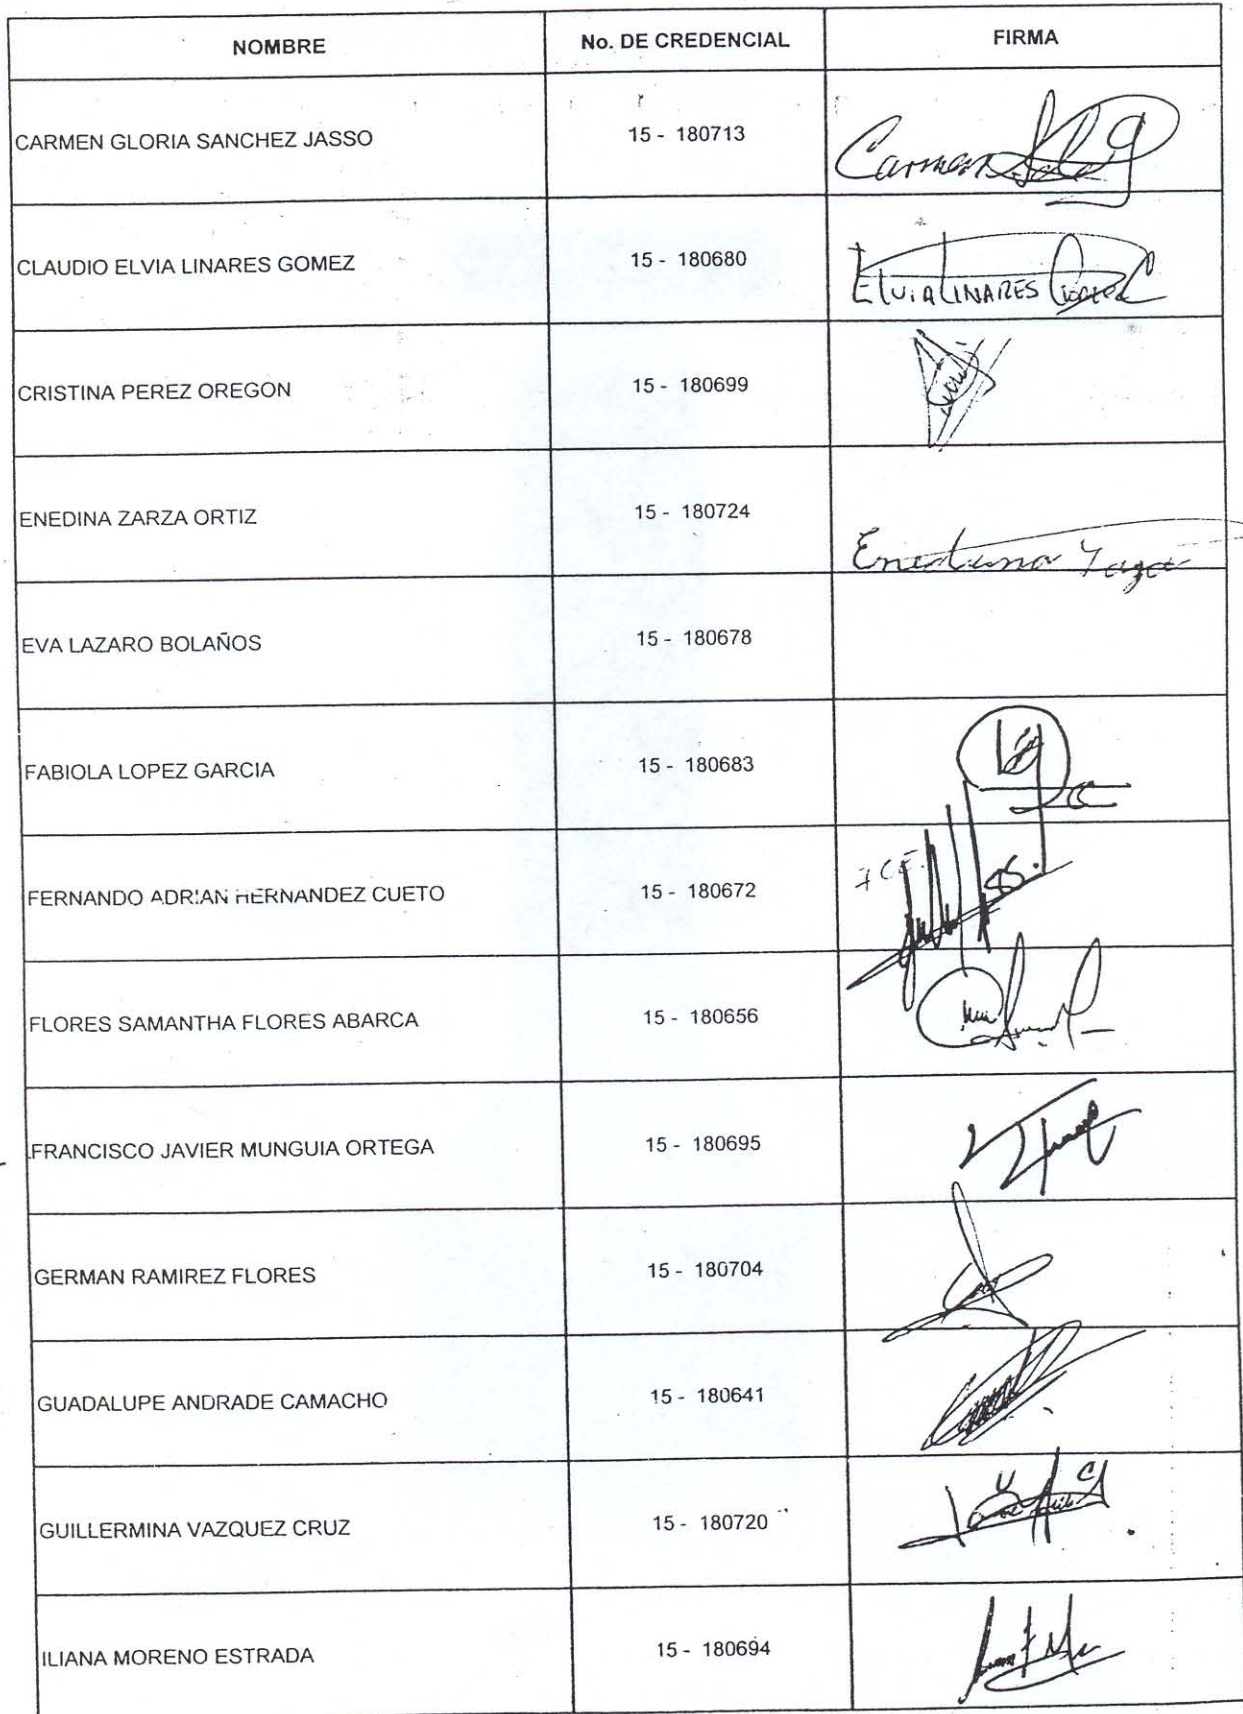 NOMBRE No. DE CREDENCIAL FIRMA
CARMEN GLORIA SANCHEZ JASSO 15 - 180713 Carmen
CLAUDIO ELVIA LINARES GOMEZ 15 - 180680 ElviA LINARES
CRISTINA PEREZ OREGON 15 - 180699
ENEDINA ZARZA ORTIZ 15 - 180724 Enedina
EVA LAZARO BOLAÑOS 15 - 180678
FABIOLA LOPEZ GARCIA 15 - 180683
FERNANDO ADRIAN HERNANDEZ CUETO 15 - 180672
FLORES SAMANTHA FLORES ABARCA 15 - 180656
FRANCISCO JAVIER MUNGUIA ORTEGA 15 - 180695
GERMAN RAMIREZ FLORES 15 - 180704
GUADALUPE ANDRADE CAMACHO 15 - 180641
GUILLERMINA VAZQUEZ CRUZ 15 - 180720
ILIANA MORENO ESTRADA 15 - 180694